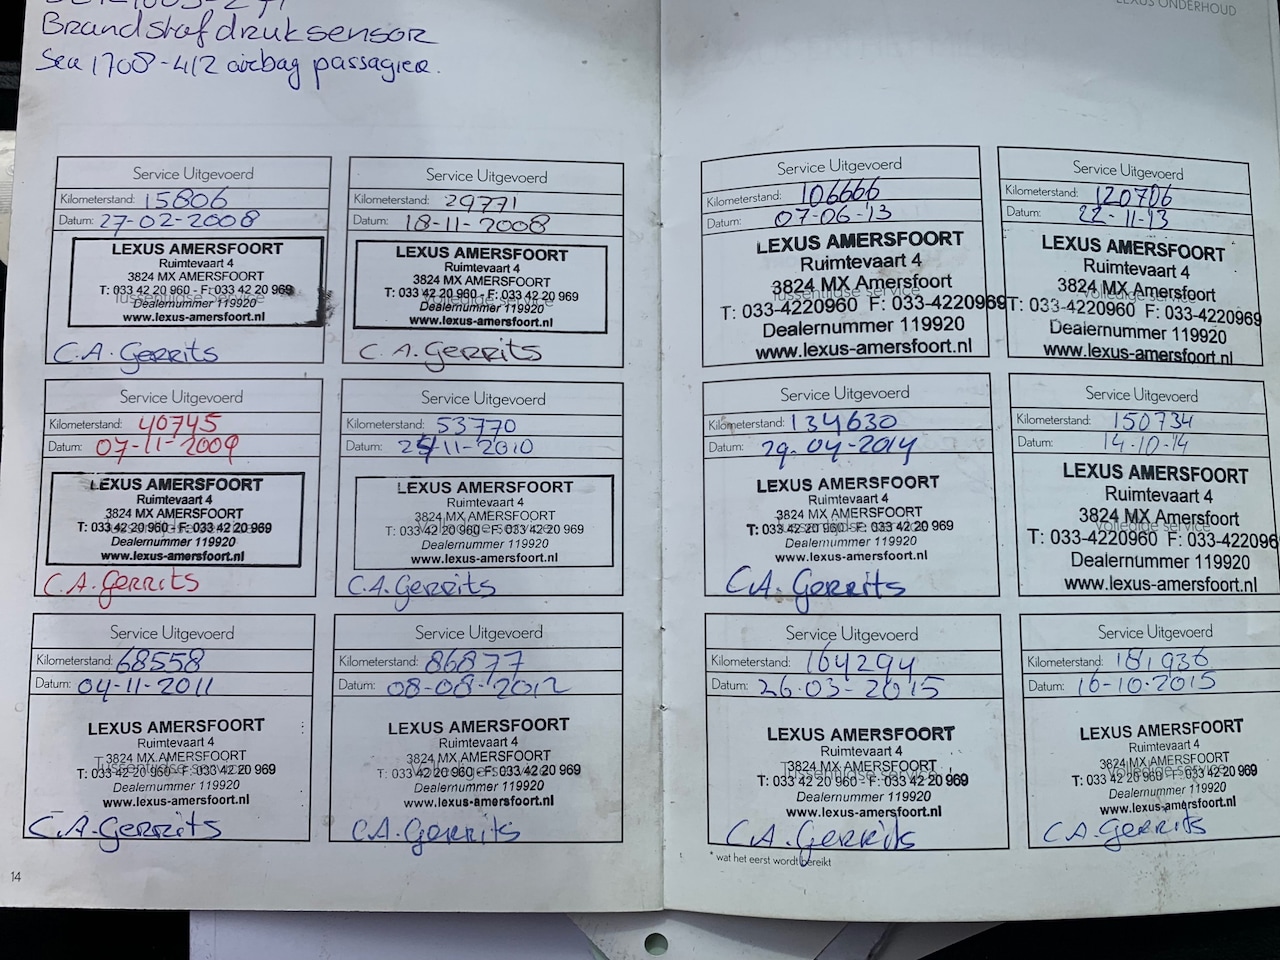 Brandstof druksensor
Sea 1708-412 airbag passagier.
LEXUS ONDERHOUD
Service Uitgevoerd
Kilometerstand: 15806
Datum: 27-02-2008
LEXUS AMERSFOORT
Ruimtevaart 4
3824 MX AMERSFOORT
T: 033 42 20 960 - F: 033 42 20 969
Tussentijdse service
Dealernummer 119920
www.lexus-amersfoort.nl
C.A. Gerrits
Service Uitgevoerd
Kilometerstand: 29771
Datum: 18-11-2008
LEXUS AMERSFOORT
Ruimtevaart 4
3824 MX AMERSFOORT
T: 033 42 20 960 - F: 033 42 20 969
Volledige service
Dealernummer 119920
www.lexus-amersfoort.nl
C.A. Gerrits
Service Uitgevoerd
Kilometerstand: 40745
Datum: 07-11-2009
LEXUS AMERSFOORT
Ruimtevaart 4
3824 MX AMERSFOORT
T: 033 42 20 960 - F: 033 42 20 969
Dealernummer 119920
www.lexus-amersfoort.nl
C.A. Gerrits
Service Uitgevoerd
Kilometerstand: 53770
Datum: 25-11-2010
LEXUS AMERSFOORT
Ruimtevaart 4
3824 MX AMERSFOORT
T: 033 42 20 960 - F: 033 42 20 969
Dealernummer 119920
www.lexus-amersfoort.nl
C.A. Gerrits
Service Uitgevoerd
Kilometerstand: 68558
Datum: 04-11-2011
LEXUS AMERSFOORT
Ruimtevaart 4
3824 MX AMERSFOORT
Tussentijdse service
T: 033 42 20 960 - F: 033 42 20 969
Dealernummer 119920
www.lexus-amersfoort.nl
C.A. Gerrits
Service Uitgevoerd
Kilometerstand: 86877
Datum: 08-08-2012
LEXUS AMERSFOORT
Ruimtevaart 4
3824 MX AMERSFOORT
T: 033 42 20 960 - F: 033 42 20 969
Dealernummer 119920
www.lexus-amersfoort.nl
C.A. Gerrits
14
Service Uitgevoerd
Kilometerstand: 106666
Datum: 07-06-13
LEXUS AMERSFOORT
Ruimtevaart 4
3824 MX Amersfoort
Tussentijdse service
T: 033-4220960 F: 033-4220969
Dealernummer 119920
www.lexus-amersfoort.nl
Service Uitgevoerd
Kilometerstand: 120706
Datum: 22-11-13
LEXUS AMERSFOORT
Ruimtevaart 4
3824 MX Amersfoort
Volledige service
T: 033-4220960 F: 033-4220969
Dealernummer 119920
www.lexus-amersfoort.nl
Service Uitgevoerd
Kilometerstand: 134630
Datum: 29-04-2014
LEXUS AMERSFOORT
Ruimtevaart 4
3824 MX AMERSFOORT
T: 033 42 20 960 - F: 033 42 20 969
Dealernummer 119920
www.lexus-amersfoort.nl
C.A. Gerrits
Service Uitgevoerd
Kilometerstand: 150734
Datum: 14-10-14
LEXUS AMERSFOORT
Ruimtevaart 4
3824 MX Amersfoort
Volledige service
T: 033-4220960 F: 033-422096
Dealernummer 119920
www.lexus-amersfoort.nl
Service Uitgevoerd
Kilometerstand: 164294
Datum: 26-03-2015
LEXUS AMERSFOORT
Ruimtevaart 4
3824 MX AMERSFOORT
Tussentijdse service
T: 033 42 20 960 - F: 033 42 20 969
Dealernummer 119920
www.lexus-amersfoort.nl
C.A. Gerrits
Service Uitgevoerd
Kilometerstand: 181936
Datum: 16-10-2015
LEXUS AMERSFOORT
Ruimtevaart 4
3824 MX AMERSFOORT
Volledige service
T: 033 42 20 960 - F: 033 42 20 969
Dealernummer 119920
www.lexus-amersfoort.nl
C.A. Gerrits
* wat het eerst wordt bereikt